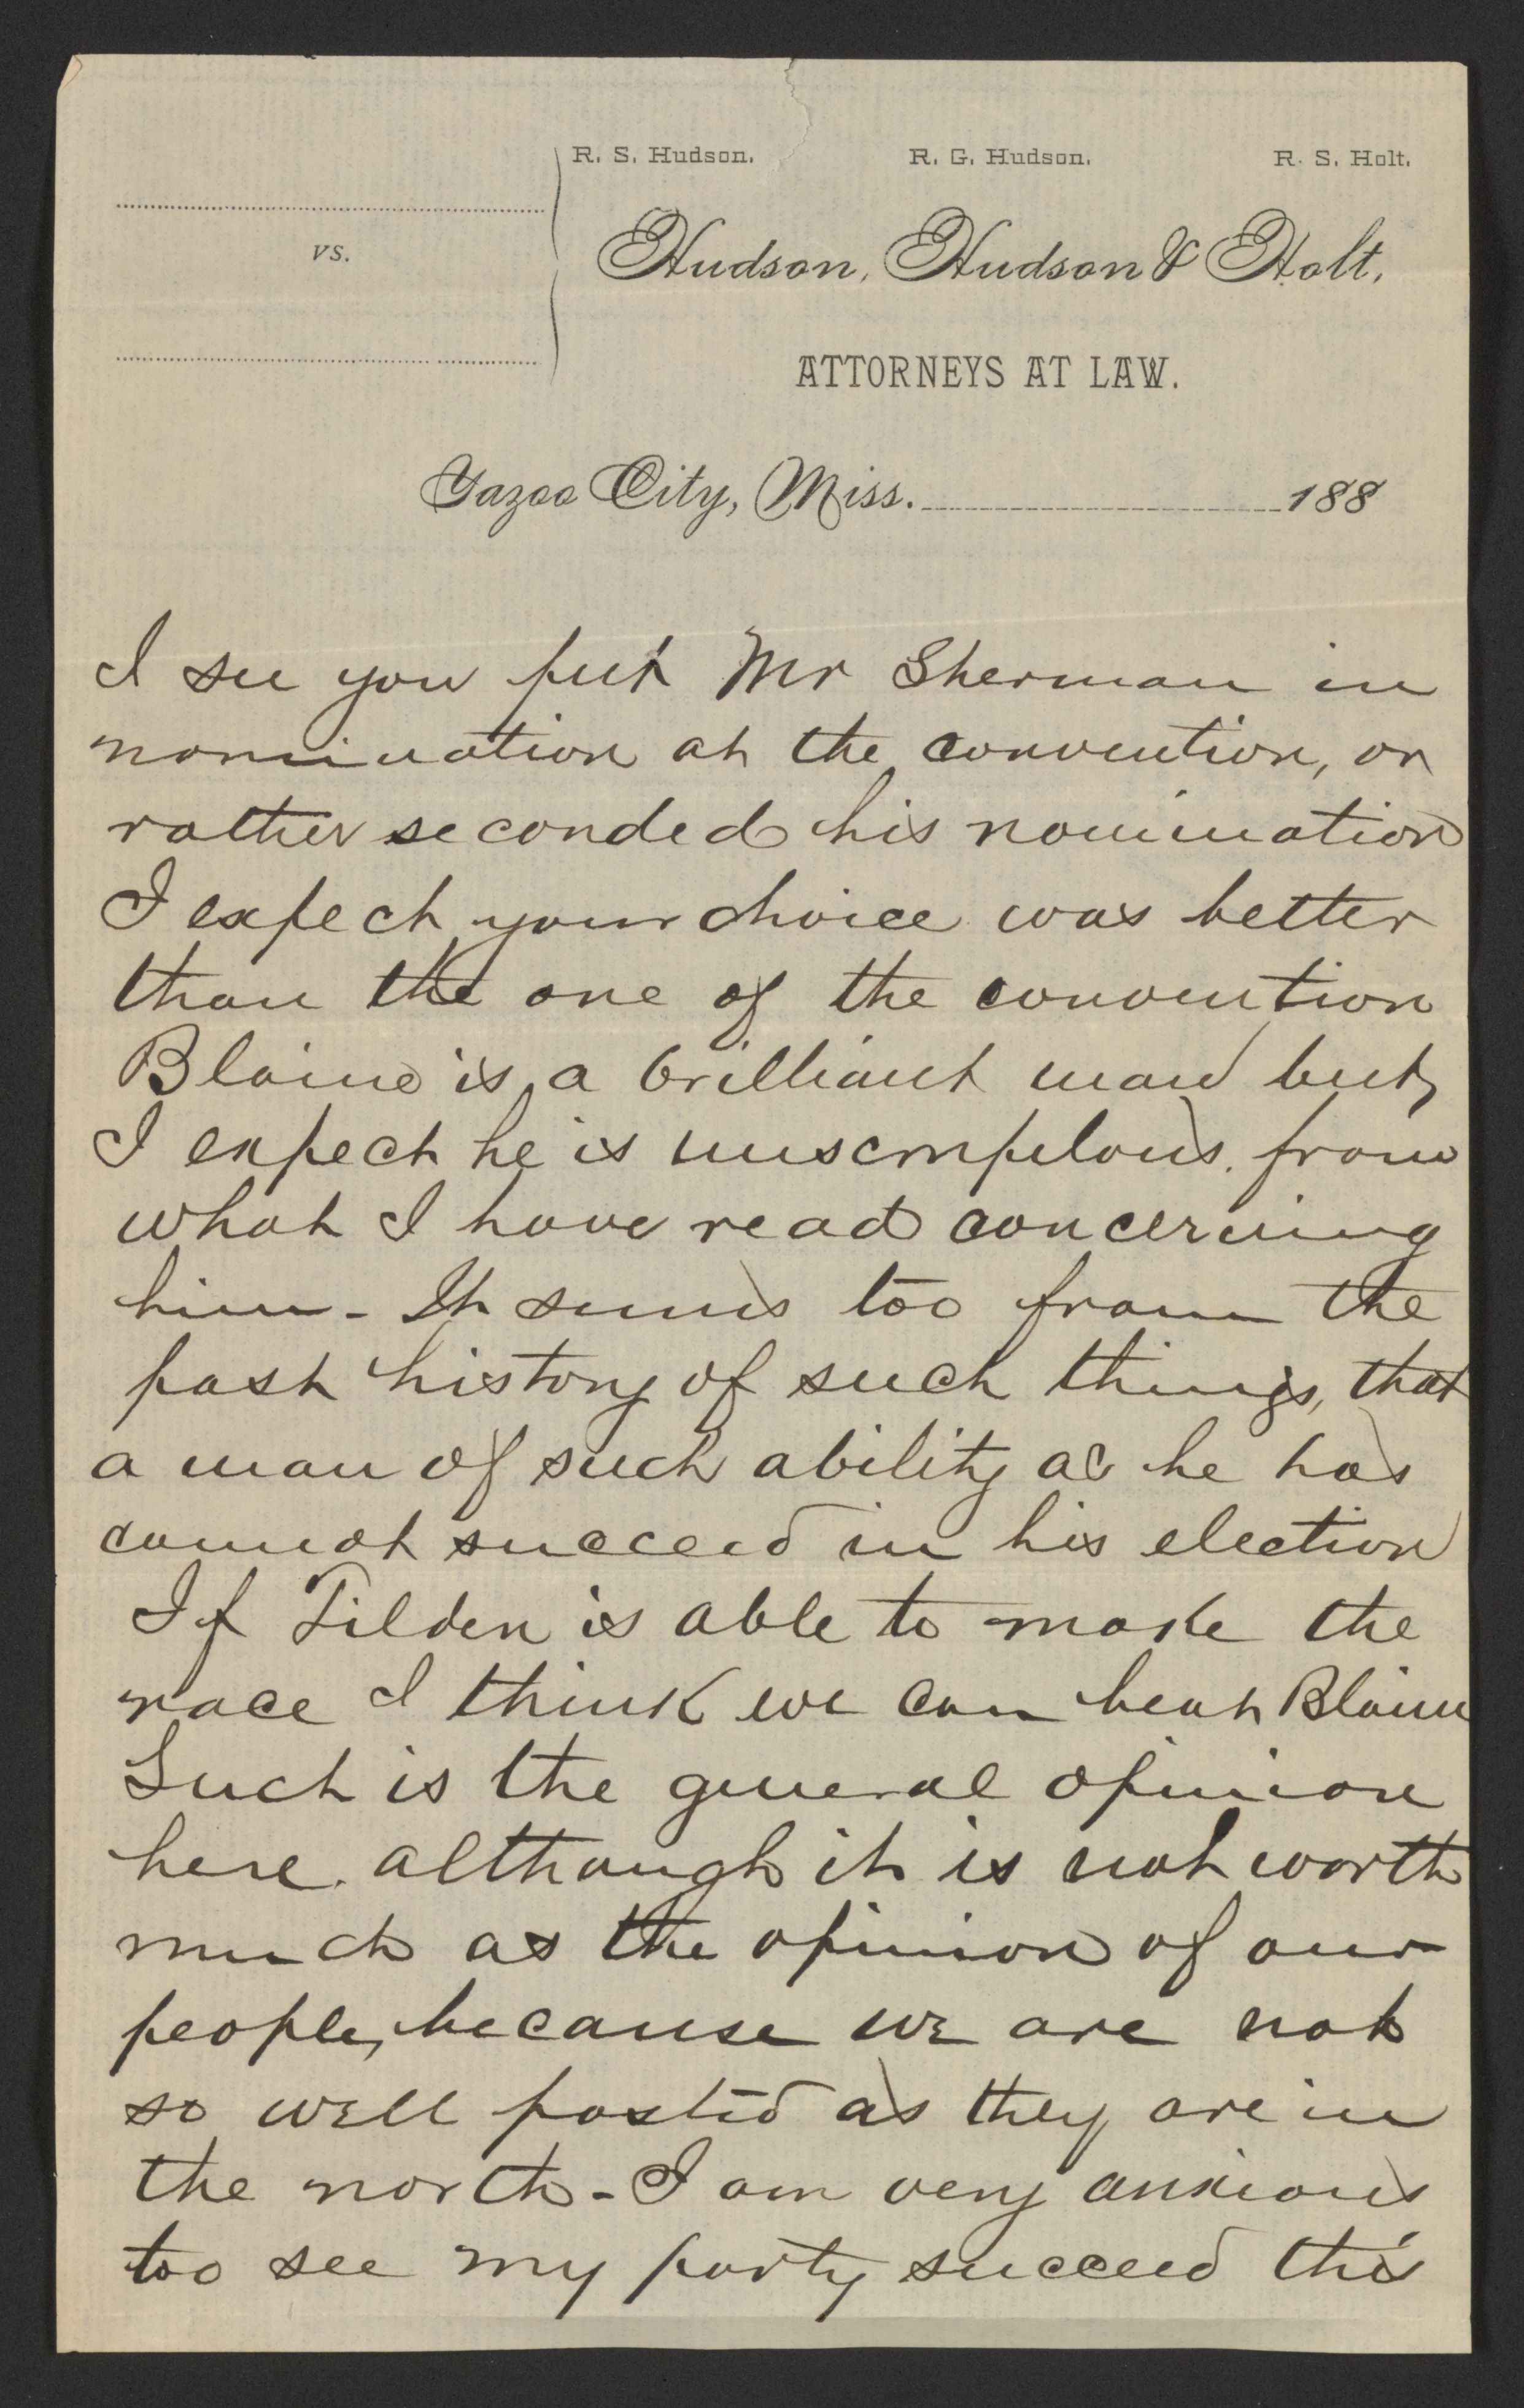 R. S. Hudson. R. G. Hudson. R. S. Holt.
vs.
Hudson, Hudson & Holt,
ATTORNEYS AT LAW.
Yazoo City, Miss. 188
I see you put Mr Sherman in
nomination at the convention, or
rather seconded his nomination
I expect your choice was better
than the one of the convention
Blaine is a brilliant man but,
I expect he is unscrupulous. from
what I have read concerning
him - It seems too from the
past history of such things, that
a man of such ability as he has
cannot succeed in his election
If Tilden is able to make the
race I think we can beat Blaine
Such is the general opinion
here. although it is not worth
much as the opinion of our
people, because we are not
so well posted as they are in
the north - I am very anxious
too see my party succeed this